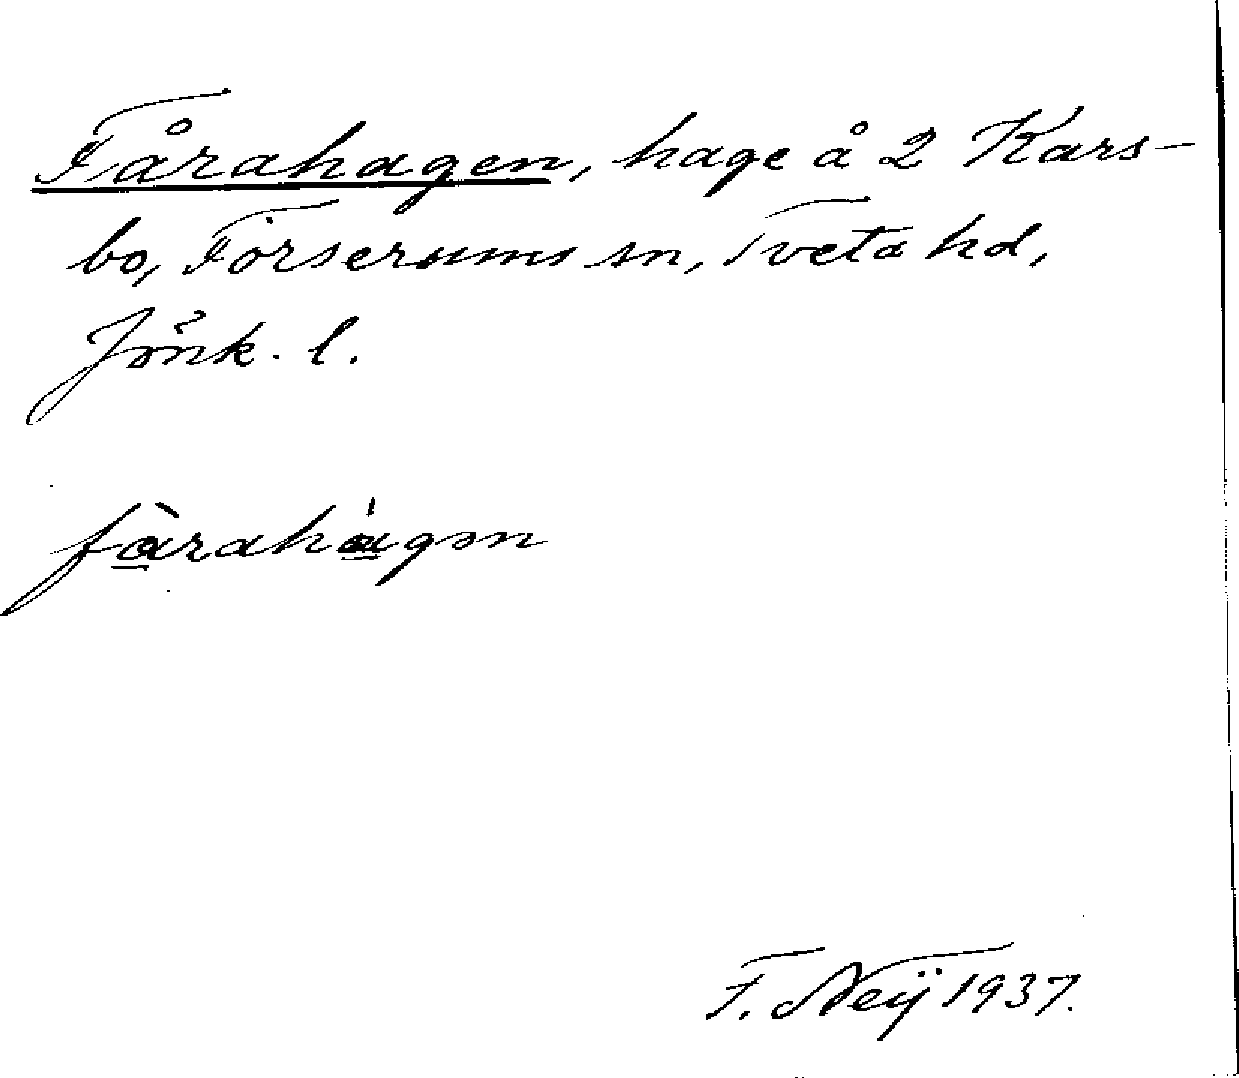 Fårahagen, hage å 2 Kars-
bo, Forserums sn, Tveta hd,
Jönk. l.
fàrahágən
F. Neij 1937.